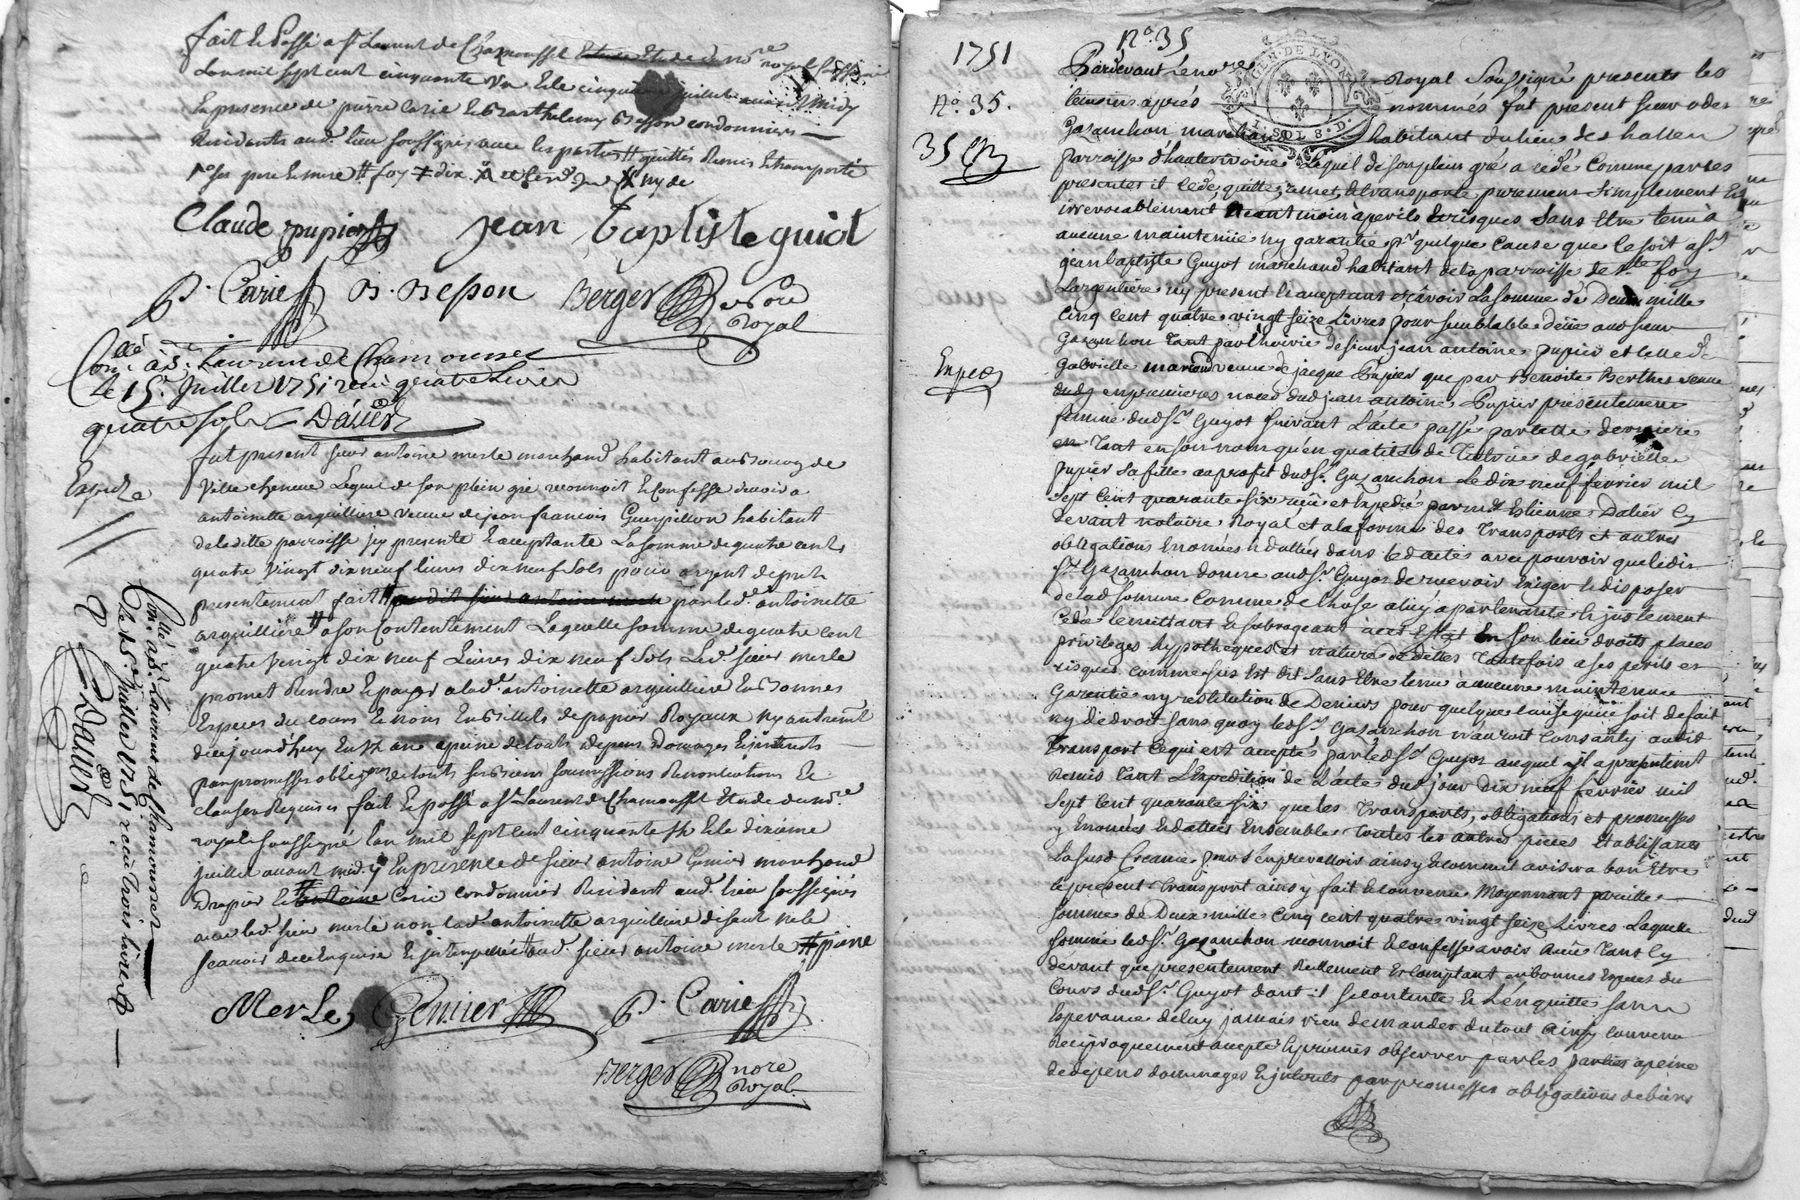 fait et passé a st Laurent de Chamousset Etude de nore royal soussigné
Lan mil sept cent cinquante un Et le cinquieme juillet avant midy
En presence de pierre Carie et Barthelemy Besson cordonniers
Residents aud. lieu soussignés avec les parties # quitter Remis et transporté
foy # dix ny de
Claude pupier Jean Baptiste guiot
P. Carie B. Besson Berger nore
Royal
Conllé à St. Laurent de Chamousset
le 15e. Juillet 1751 reçu quatre livres
quatre sols Dalier
fut present sieur antoine merle marchand habitant au Bourg de
Ville cheneve Lequel de son plein gré reconnoit et Confesse devoir a
Exped
antoinette arquilliere veuve de jean francois Guerpillon habitant
de la ditte parroisse jcy presente et acceptante La somme de quatre cents
quatre vingt dix neuf livres dix neuf sols pour argent de prets
presentement fait # par lad. antoinette
arquilliere # a son Contentement Laquelle somme de quatre cent
quatre vingt dix neuf Livres dix neuf sols Led. sieur merle
promet Rendre Et payer a lad. antoinette arquilliere En Bonnes
Especes du cours Et non En Billets de papier Royaux ny autremt
d'aujourd'huy En un an a peine de touts depens Domages Et jnterests
par promesses obligons de touts ses Biens soumissions Renontiations Et
clauses Requises fait Et passé a st Laurent de Chamousset Etude du nre.
royal soussigné Lan mil sept cent cinquante un Et le dixieme
juillet avant midy En presence de sieur antoine Gemier marchand
Drapier Et Carie cordonnier Resident aud. lieu soussignés
avec led. sieur merle non lad. antoinette arquilliere disant ne le
scavoir de ce Enquise Et jnterpellée # aud. sieur antoine merle # pierre
Merle Gemier P. Carie
Berger nore
Royal
Conllé à St. Laurent de Chamousset
le 15e. Juillet 1751 reçu trois livres
Dalier
1751 No. 35
Pardevant le nore Royal soussigné presents les
No. 35. temoins après nommés fut present sieur
35
GEN. DE LYON
SOLS 8. D.
Gazanchon marchand habitant du lieu des halles
parroisse d'hauterivoire Lequel de son plein gré a cedé Comme par ces
presentes il cede, quitte, remet, et transporte purement simplement Et
irrevocablement, neantmoins a perils et risques sans Etre tenu à
aucune maintenüe ny garantie pr quelque Cause que ce soit a sr
jean baptiste Guyot marchand habitant de la parroisse de ste foy
L'argentiere icy present et aceptant sçavoir La somme de Deux mille
Cinq cent quatre vingt seize Livres pour semblable deüe aud sieur
Gazanchon Tant par l'hoirie de sieur jean antoine pupier et celle de
Exped
Gabrielle veuve de jacque Pupier que par Benoite Berthet veuve
en premieres noces dud jean antoine Pupier presentement
femme dud sr. Guyot suivant L'acte passé par cette derniere
Tant en son nom qu'en qualité de Tutrice de gabrielle
pupier sa fille au profit dud sr. Gazanchon Le dix neuf fevrier mil
sept Cent quarante six reçu et Expedié par md Estienne Dalier cy
devant notaire Royal et a la forme des Transports et autres
obligations Enoncées et dattées dans led acte avec pouvoir que led
sr. Gazanchon donne aud sr. Guyot de recevoir Exiger et disposer
de lad somme Comme de chose a luy apartenante et justement
Cedée le mettant et subrogeant a cet Effet En son lieu droits places
privileges hypotheques et nature de dettes Toutefois a ses perils et
risques comme sus Est dit sans Etre tenu à aucune maintenue
Garentie ny restitution de Deniers pour quelque cause que ce soit de fait
ny de droit sans quoy led sr. Gazanchon n'auroit Consanty aud
Transport Ce qui est accepté par led sr. Guyot auquel il a presentemt
Remis tant L'Expedition de L'acte dud jour dix neuf fevrier mil
sept cent quarante six que les Transports, obligations et promesses
y Enoncées Et dattées Ensemble Toutes les autres pieces Etablissants
La susd Creance pour s'en prevalloir ainsy Et comme avisera bon Etre
le present Transport ainsy fait Et convenu Moyennant pareille
somme de Deux mille Cinq cent quatre vingt seize Livres Laquelle
somme led sr. Gazanchon reconnoit Et confesse avoir reçüe Tant cy
devant que presentement Reellement Et comptant en bonnes Especes du
Cours dud sr. Guyot dont il se contente Et L'en quitte sans
Esperance de luy jamais rien demander du tout Ainsy convenu
Reciproquement accepté Et promis observer par les parties a peine
de depens dommages Et jnterets par promesses obligations de biens